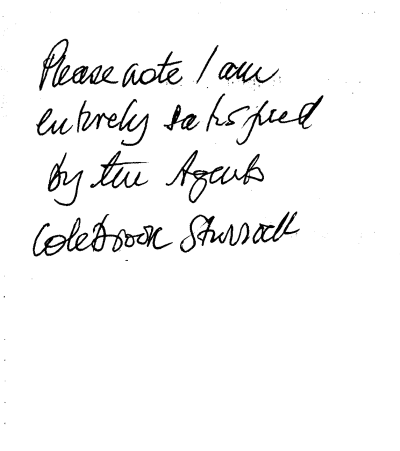 Please note I am
entirely satisfied
by the Agents
Colebrook Sturrock